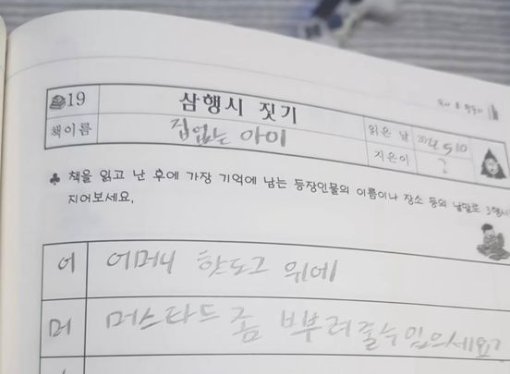 19 삼행시 짓기
책이름 집없는 아이 읽은 날 2024 5 10
지은이 ?
♣ 책을 읽고 난 후에 가장 기억에 남는 등장인물의 이름이나 장소 등의 낱말로 3행시
지어보세요.
어 어머니 핫도그 위에
머 머스타드 좀 뿌려줄수 있으세요?